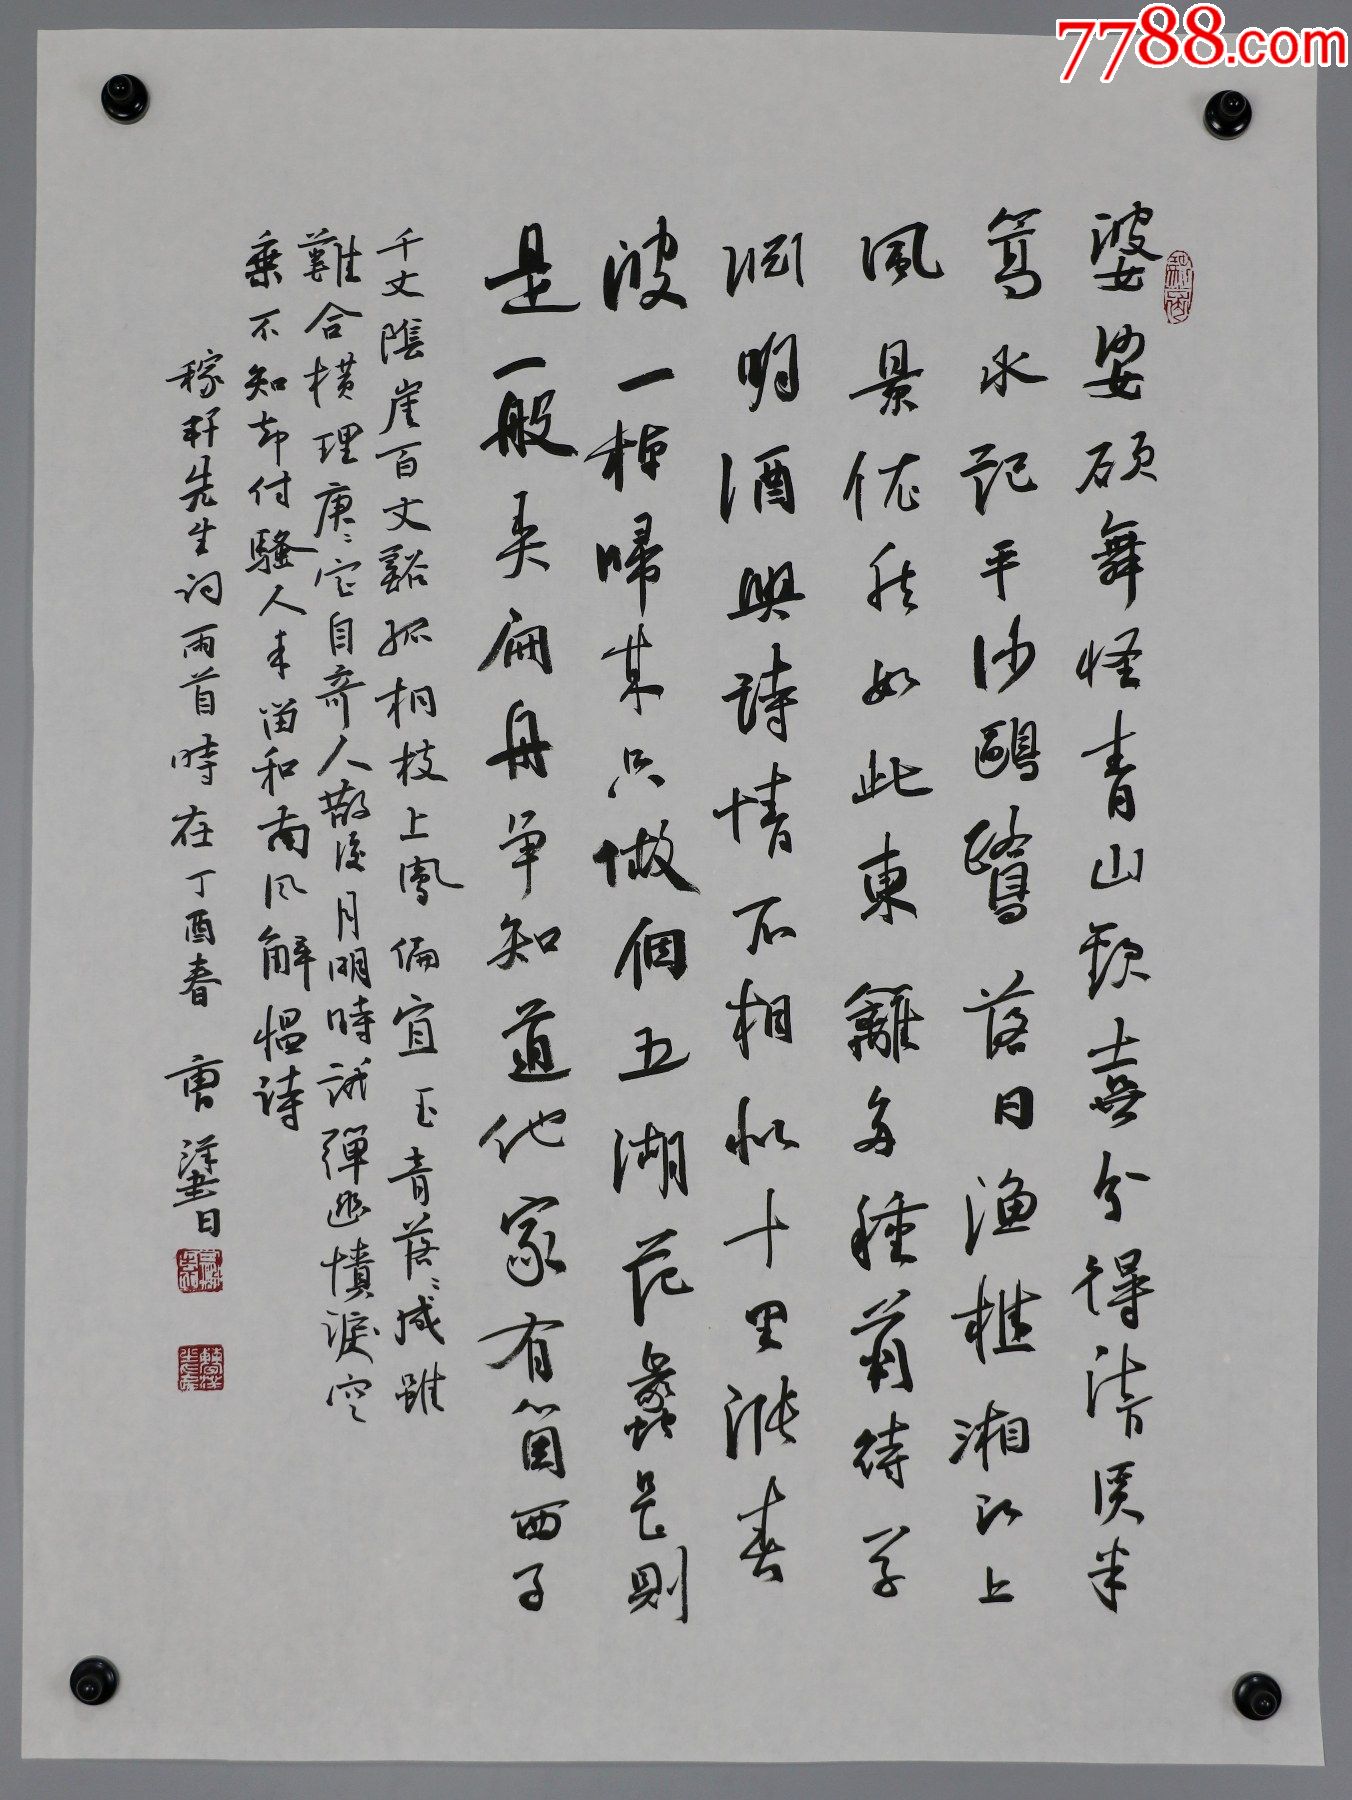 婆娑欲舞怪青山歡喜分得清溪半
篙水記平沙鷗鷺落日漁樵湘江上
風景依然如此東籬多種菊待學
淵明酒興詩情不相似十里漲春
波一棹歸來只做個五湖范蠡是則
是一般弄扁舟爭知道他家有箇西子
千丈陰崖百丈谿孤桐枝上鳳偏宜玉音落〻咸雖
難合橫理庚〻定自奇人散後月明時試彈幽憤淚空
垂不知却付騷人手留和南風解慍詩
稼軒先生詞兩首時在丁酉春 曹洋書
7788.com